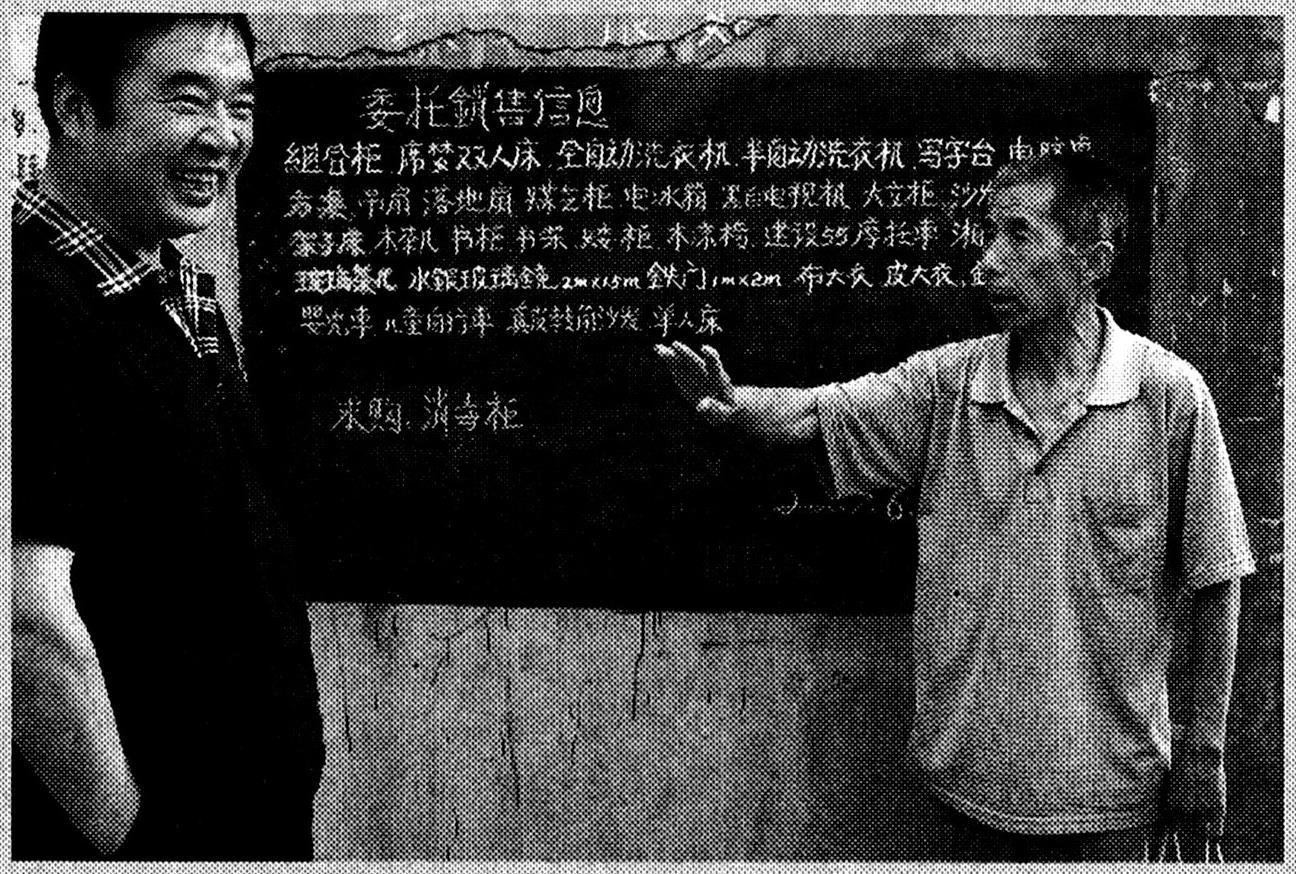 委托銷售信息
組合柜 席梦双人床 全自动洗衣机 半自动洗衣机 写字台 电脑桌
方桌 吊扇 落地扇 煤气柜 电冰箱 黑白电视机 大立柜 沙发
架子床 木茶几 书柜 书架 矮柜 木凉椅 建设55摩托车
玻璃茶几 水銀玻璃鏡 2m×1.5m 鉄门 1m×2m 布大衣 皮大衣
婴児車 儿童自行車 真皮转角沙发 单人床
求购. 消毒柜